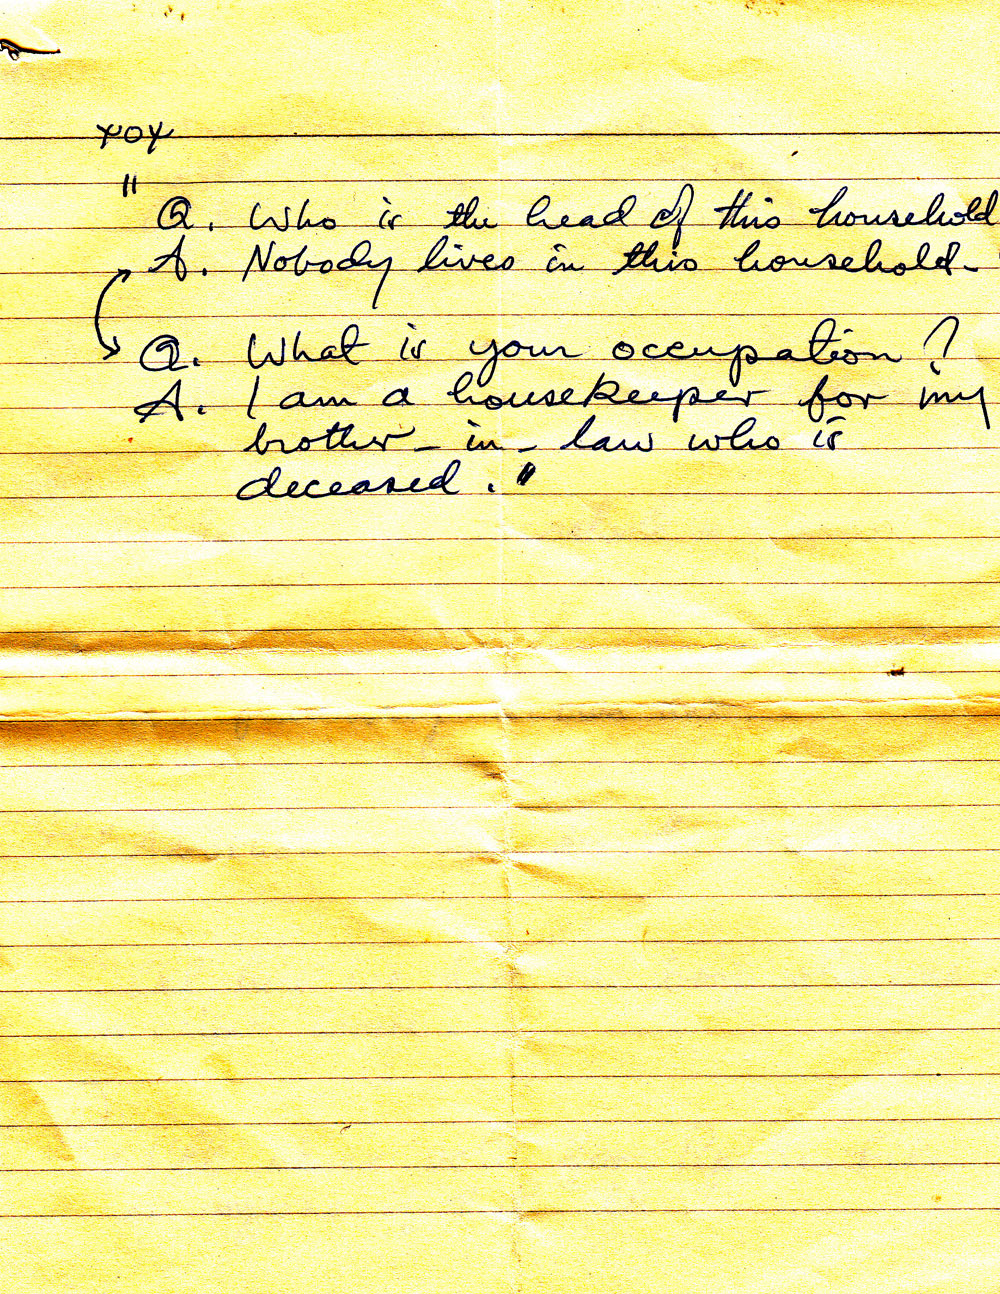 xox
"
Q. Who is the head of this household
A. Nobody lives in this household.
Q. What is your occupation?
A. I am a housekeeper for my
brother-in-law who is
deceased."